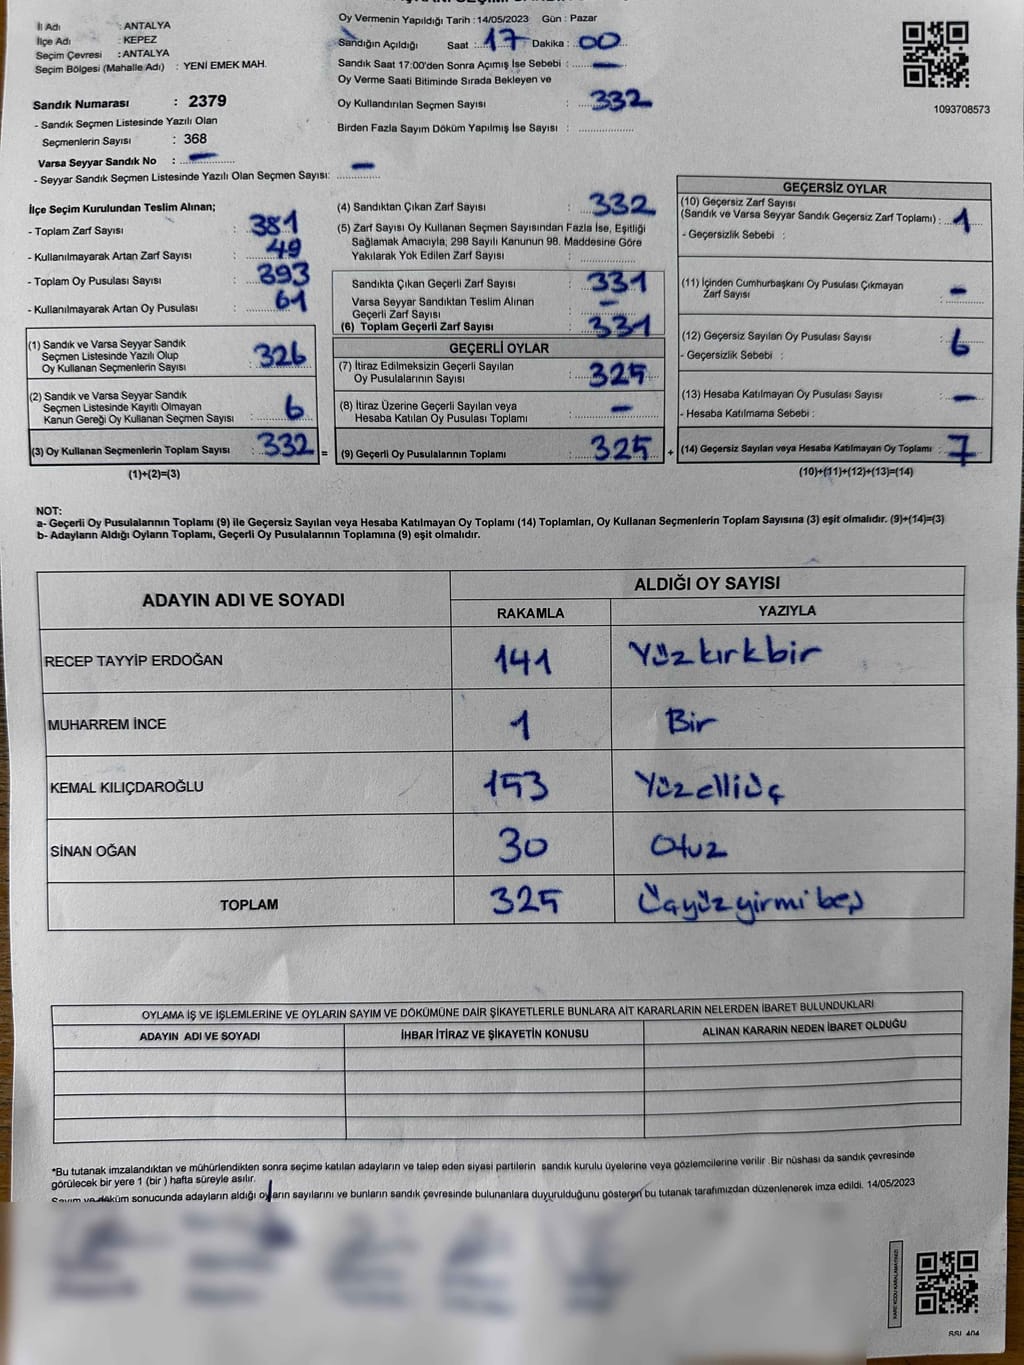 İl Adı : ANTALYA
İlçe Adı : KEPEZ
Seçim Çevresi : ANTALYA
Seçim Bölgesi (Mahalle Adı) : YENİ EMEK MAH.
Sandık Numarası : 2379
- Sandık Seçmen Listesinde Yazılı Olan
Seçmenlerin Sayısı : 368
Varsa Seyyar Sandık No : –
- Seyyar Sandık Seçmen Listesinde Yazılı Olan Seçmen Sayısı: –
Oy Vermenin Yapıldığı Tarih : 14/05/2023 Gün : Pazar
Sandığın Açıldığı Saat : 17 Dakika : 00
Sandık Saat 17:00'den Sonra Açımış İse Sebebi : –
Oy Verme Saati Bitiminde Sırada Bekleyen ve
Oy Kullandırılan Seçmen Sayısı : 332
Birden Fazla Sayım Döküm Yapılmış İse Sayısı :
1093708573
İlçe Seçim Kurulundan Teslim Alınan;
- Toplam Zarf Sayısı : 381
- Kullanılmayarak Artan Zarf Sayısı : 49
- Toplam Oy Pusulası Sayısı : 393
- Kullanılmayarak Artan Oy Pusulası : 61
(1) Sandık ve Varsa Seyyar Sandık
Seçmen Listesinde Yazılı Olup
Oy Kullanan Seçmenlerin Sayısı : 326
(2) Sandık ve Varsa Seyyar Sandık
Seçmen Listesinde Kayıtlı Olmayan
Kanun Gereği Oy Kullanan Seçmen Sayısı : 6
(3) Oy Kullanan Seçmenlerin Toplam Sayısı : 332 =
(1)+(2)=(3)
(4) Sandıktan Çıkan Zarf Sayısı : 332
(5) Zarf Sayısı Oy Kullanan Seçmen Sayısından Fazla İse, Eşitliği
Sağlamak Amacıyla; 298 Sayılı Kanunun 98. Maddesine Göre
Yakılarak Yok Edilen Zarf Sayısı :
Sandıkta Çıkan Geçerli Zarf Sayısı : 331
Varsa Seyyar Sandıktan Teslim Alınan
Geçerli Zarf Sayısı : –
(6) Toplam Geçerli Zarf Sayısı : 331
GEÇERLİ OYLAR
(7) İtiraz Edilmeksizin Geçerli Sayılan
Oy Pusulalarının Sayısı : 325
(8) İtiraz Üzerine Geçerli Sayılan veya
Hesaba Katılan Oy Pusulası Toplamı : –
(9) Geçerli Oy Pusulalarının Toplamı : 325 +
GEÇERSİZ OYLAR
(10) Geçersiz Zarf Sayısı
(Sandık ve Varsa Seyyar Sandık Geçersiz Zarf Toplamı) : 1
- Geçersizlik Sebebi :
(11) İçinden Cumhurbaşkanı Oy Pusulası Çıkmayan
Zarf Sayısı : –
(12) Geçersiz Sayılan Oy Pusulası Sayısı : 6
- Geçersizlik Sebebi :
(13) Hesaba Katılmayan Oy Pusulası Sayısı : –
- Hesaba Katılmama Sebebi :
(14) Geçersiz Sayılan veya Hesaba Katılmayan Oy Toplamı : 7
(10)+(11)+(12)+(13)=(14)
NOT:
a- Geçerli Oy Pusulalarının Toplamı (9) ile Geçersiz Sayılan veya Hesaba Katılmayan Oy Toplamı (14) Toplamları, Oy Kullanan Seçmenlerin Toplam Sayısına (3) eşit olmalıdır. (9)+(14)=(3)
b- Adayların Aldığı Oyların Toplamı, Geçerli Oy Pusulalarının Toplamına (9) eşit olmalıdır.
ADAYIN ADI VE SOYADI ALDIĞI OY SAYISI
RAKAMLA YAZIYLA
RECEP TAYYİP ERDOĞAN 141 Yüzkırkbir
MUHARREM İNCE 1 Bir
KEMAL KILIÇDAROĞLU 153 Yüzelliüç
SİNAN OĞAN 30 Otuz
TOPLAM 325 Üçyüzyirmibeş
OYLAMA İŞ VE İŞLEMLERİNE VE OYLARIN SAYIM VE DÖKÜMÜNE DAİR ŞİKAYETLERLE BUNLARA AİT KARARLARIN NELERDEN İBARET BULUNDUKLARI
ADAYIN ADI VE SOYADI İHBAR İTİRAZ VE ŞİKAYETİN KONUSU ALINAN KARARIN NEDEN İBARET OLDUĞU
*Bu tutanak imzalandıktan ve mühürlendikten sonra seçime katılan adayların ve talep eden siyasi partilerin sandık kurulu üyelerine veya gözlemcilerine verilir. Bir nüshası da sandık çevresinde
görülecek bir yere 1 (bir) hafta süreyle asılır.
Sayım ve döküm sonucunda adayların aldığı oyların sayılarını ve bunların sandık çevresinde bulunanlara duyurulduğunu gösteren bu tutanak tarafımızdan düzenlenerek imza edildi. 14/05/2023